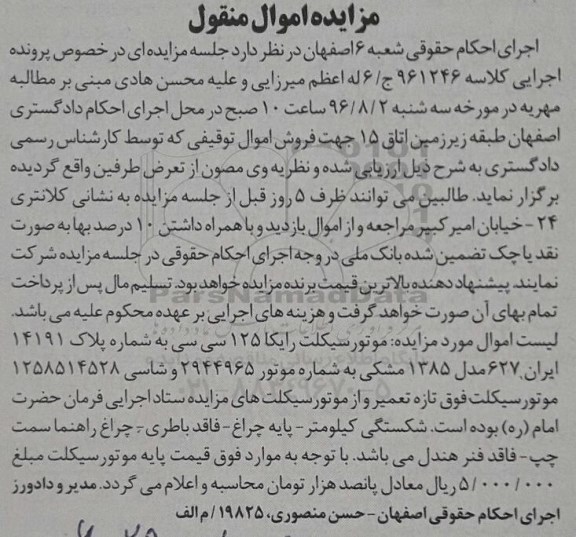 مزایده اموال منقول
اجرای احکام حقوقی شعبه ۶ اصفهان در نظر دارد جلسه مزایده ای در خصوص پرونده
اجرایی کلاسه ۹۶۱۲۴۶ ج/۶ له اعظم میرزایی و علیه محسن هادی مبنی بر مطالبه
مهریه در مورخه سه شنبه ۹۶/۸/۲ ساعت ۱۰ صبح در محل اجرای احکام دادگستری
اصفهان طبقه زیرزمین اتاق ۱۵ جهت فروش اموال توقیفی که توسط کارشناس رسمی
دادگستری به شرح ذیل ارزیابی شده و نظریه وی مصون از تعرض طرفین واقع گردیده
برگزار نماید. طالبین می توانند ظرف ۵ روز قبل از جلسه مزایده به نشانی کلانتری
۲۴ - خیابان امیرکبیر مراجعه و از اموال بازدید و با همراه داشتن ۱۰ درصد بها به صورت
نقد یا چک تضمین شده بانک ملی در وجه اجرای احکام حقوقی در جلسه مزایده شرکت
نمایند. پیشنهاد دهنده بالاترین قیمت برنده مزایده خواهد بود. تسلیم مال پس از پرداخت
تمام بهای آن صورت خواهد گرفت و هزینه های اجرایی بر عهده محکوم علیه می باشد.
لیست اموال مورد مزایده: موتورسیکلت رایکا ۱۲۵ سی سی به شماره پلاک ۱۴۱۹۱
ایران ۶۲۷ مدل ۱۳۸۵ مشکی به شماره موتور ۲۹۴۴۹۶۵ و شاسی ۱۲۵۸۵۱۴۵۲۸
موتورسیکلت فوق تازه تعمیر و از موتورسیکلت های مزایده ستاد اجرایی فرمان حضرت
امام (ره) بوده است. شکستگی کیلومتر - پایه چراغ - فاقد باطری - چراغ راهنما سمت
چپ - فاقد فنر هندل می باشد. با توجه به موارد فوق قیمت پایه موتورسیکلت مبلغ
۵/۰۰۰/۰۰۰ ریال معادل پانصد هزار تومان محاسبه و اعلام می گردد. مدیر و دادورز
اجرای احکام حقوقی اصفهان - حسن منصوری، ۱۹۸۲۵/م الف
ParsNamadData